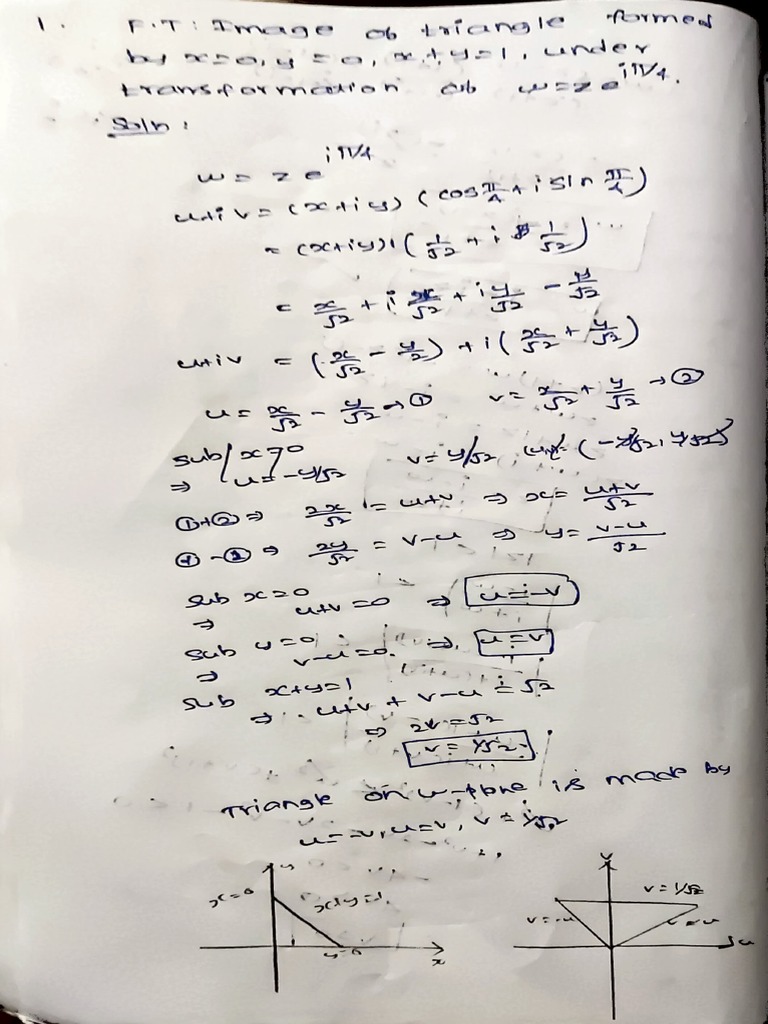 1. F.T: Image ob triangle formed
by x=0, y=0, x+y=1, under
transformation ob w=ze^{iπ/4}.
Soln:
w = ze^{iπ/4}
u+iv = (x+iy) (cos π/4 + i sin π/4)
= (x+iy) (1/√2 + i 1/√2)
= x/√2 + i x/√2 + iy/√2 - y/√2
u+iv = (x/√2 - y/√2) + i (x/√2 + y/√2)
u = x/√2 - y/√2 → ① v = x/√2 + y/√2 → ②
sub x=0
⇒ u = -y/√2 v = y/√2
①+② ⇒ 2x/√2 = u+v ⇒ x = u+v/√2
⇒ 2y/√2 = v-u ⇒ y = v-u/√2
sub x=0
⇒ u+v=0 ⇒ u=-v
sub y=0
⇒ v-u=0. ⇒ u=v
sub x+y=1
⇒ u+v + v-u = √2
⇒ 2v = √2
v = 1/√2
Triangle on w-plane is made by
u=-v, u=v, v=1/√2
y
x=0
x+y=1
y=0
x
v
v=1/√2
v=-u
v=u
u